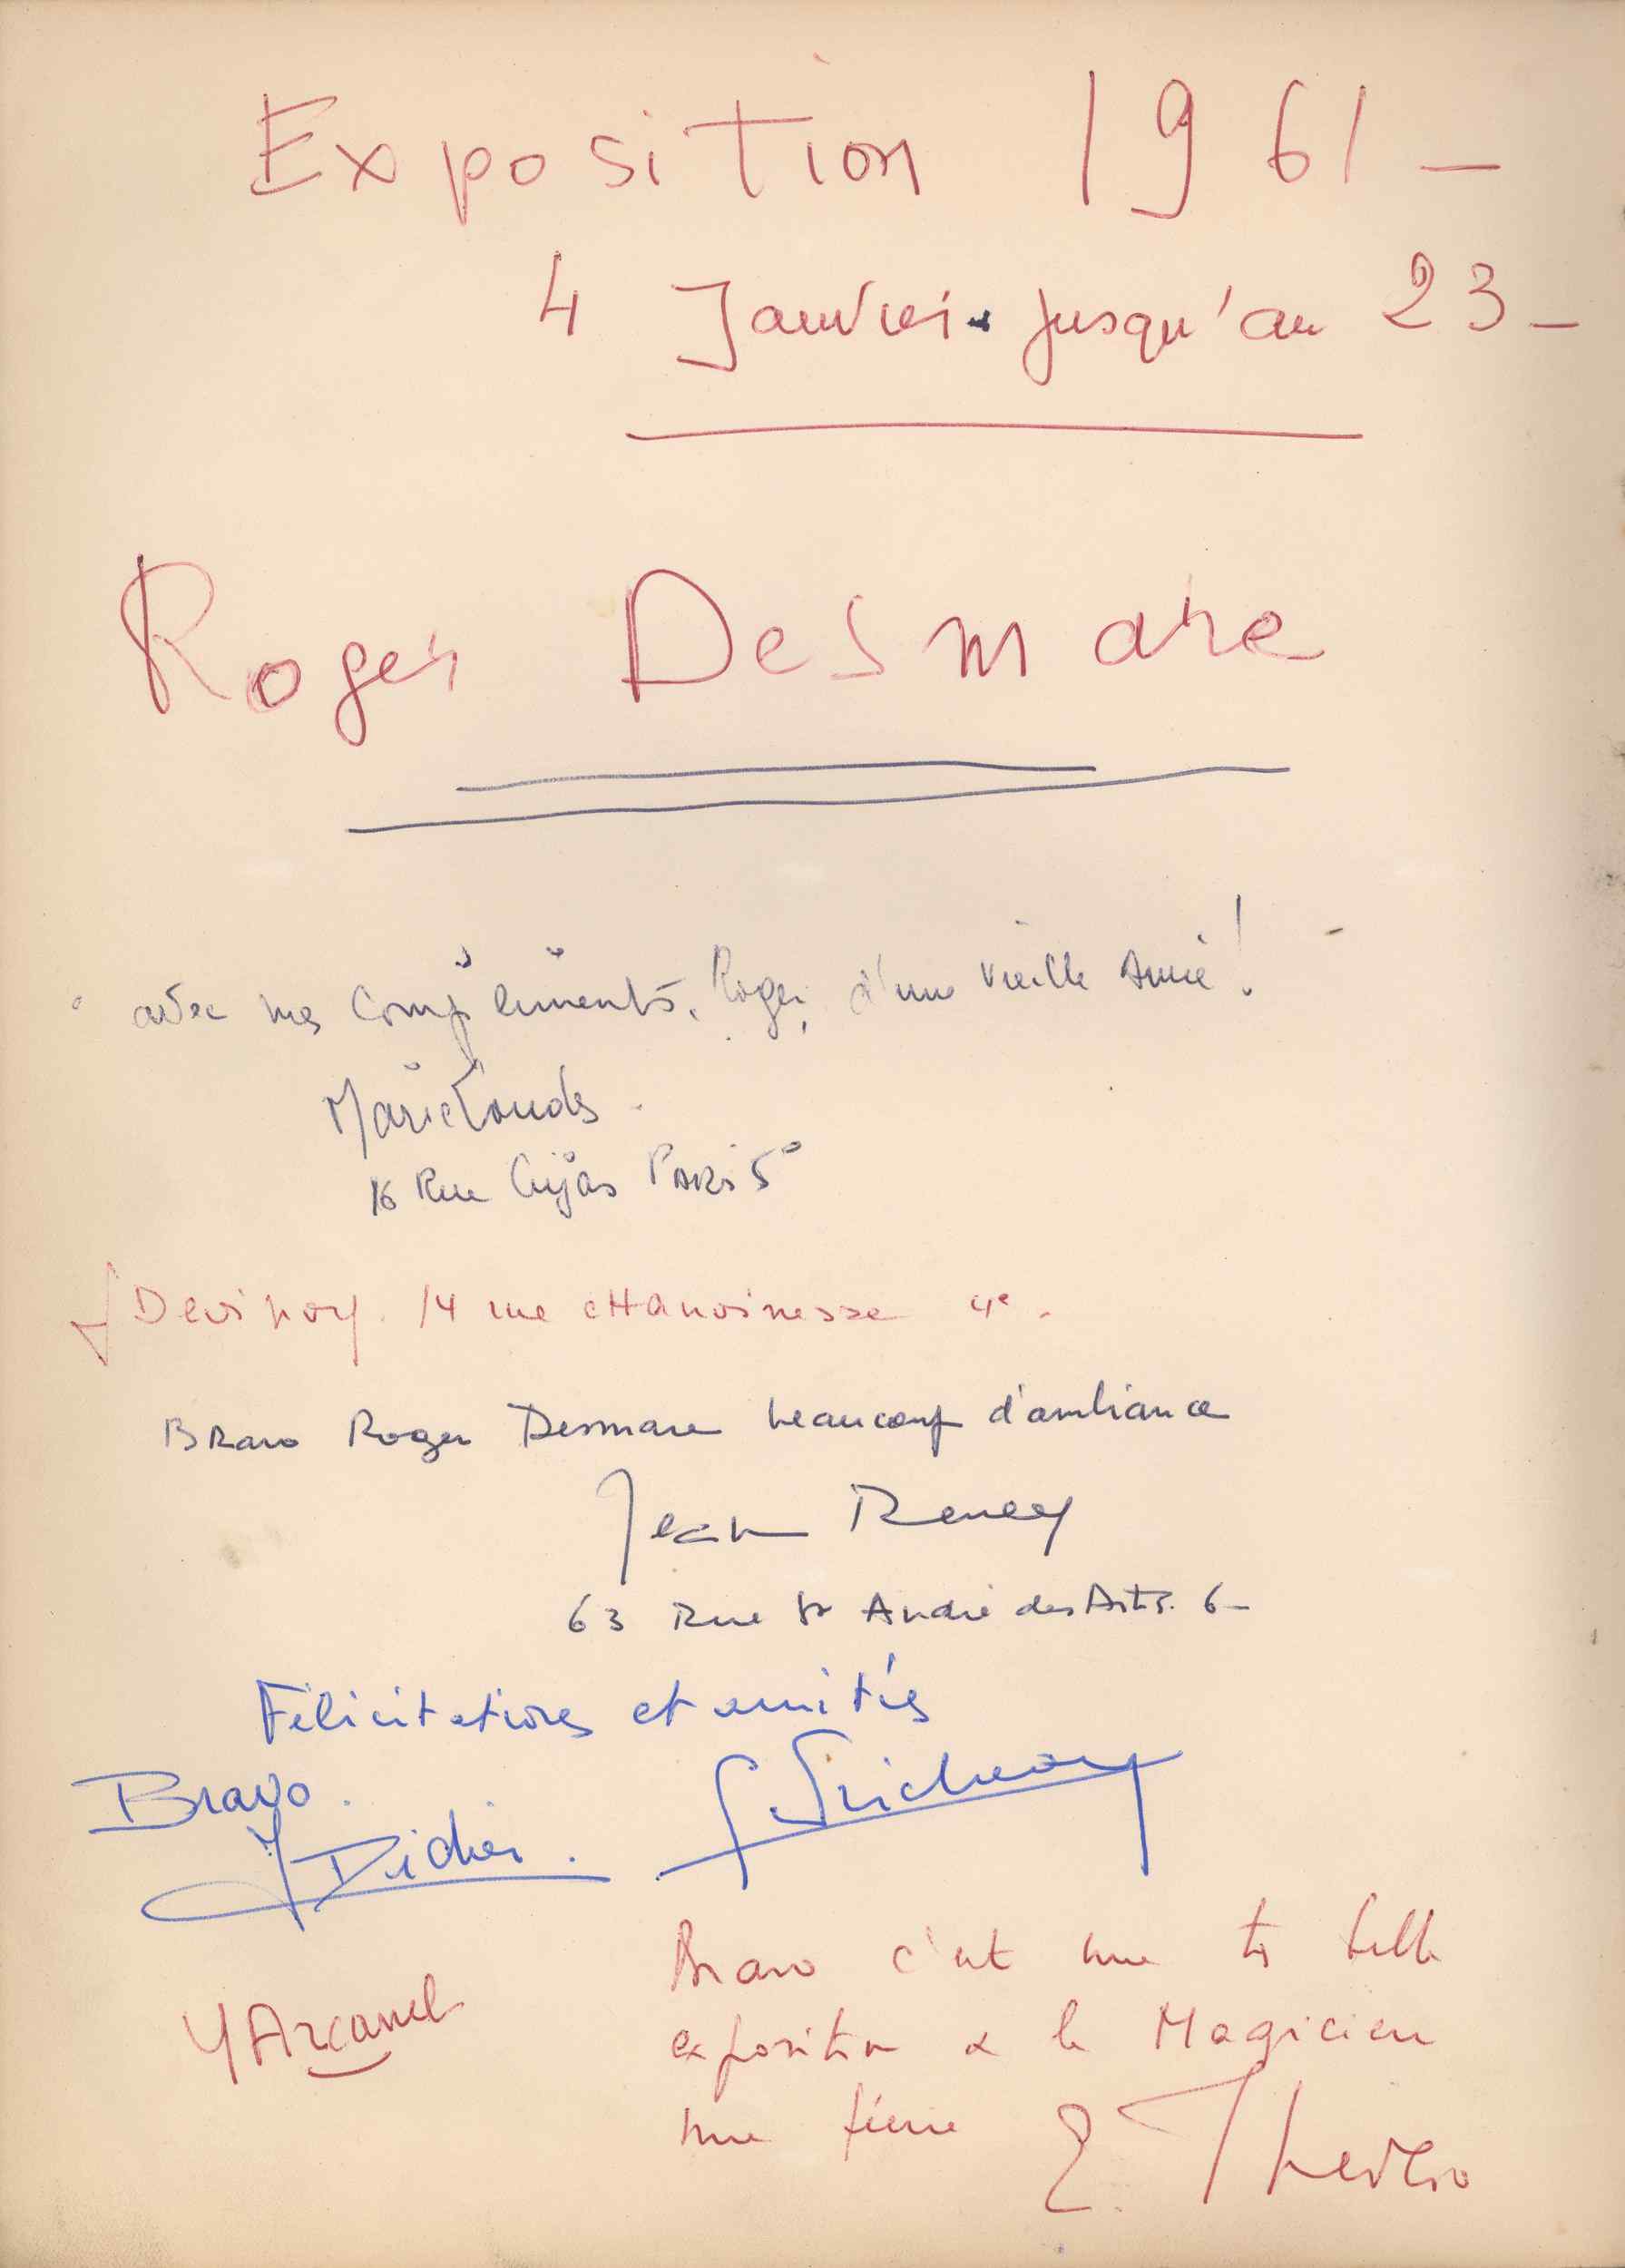 Exposition 1961 -
4 Janvier jusqu'au 23 -
Roger Desmare
avec mes compliments, Roger, d'une vieille Amie !
16 Rue Cujas PARIS 5°
Devinoy. 14 rue cHanoinesse 4e.
BRavo Roger Desmare beaucoup d'ambiance
Jean
63 Rue St André des Arts. 6 -
Félicitations et amitiés
Bravo.
J Didier.
Bravo c'est une très belle
exposition & le Magicien
une féerie